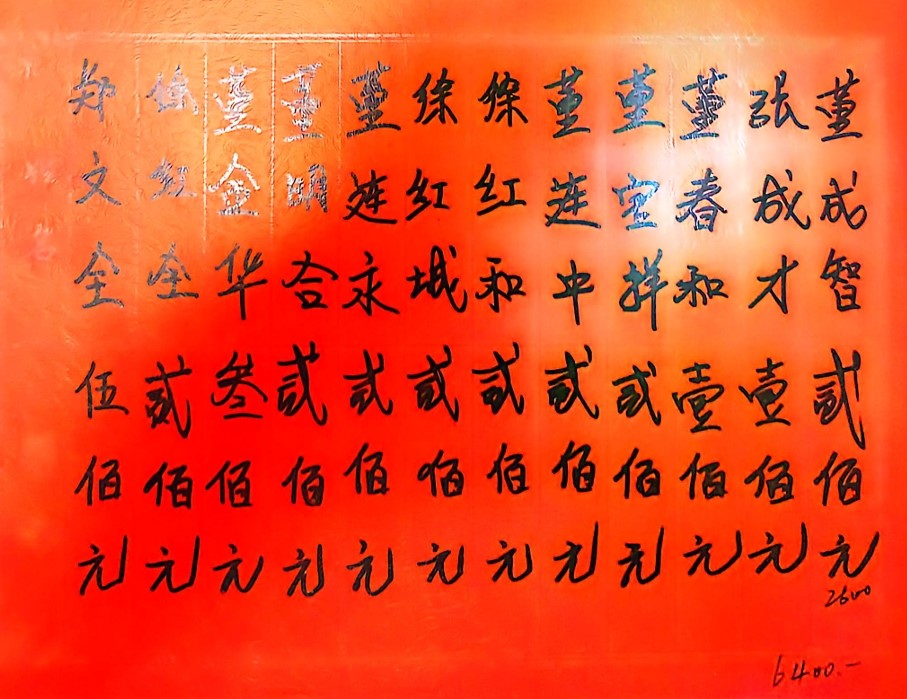 董成智贰佰元
张成才壹佰元
董春和壹佰元
董宝祥贰佰元
董莲中贰佰元
徐红和贰佰元
徐红城贰佰元
董连永贰佰元
董明合贰佰元
董金华叁佰元
徐红全贰佰元
郑文全伍佰元
2600
6400.-